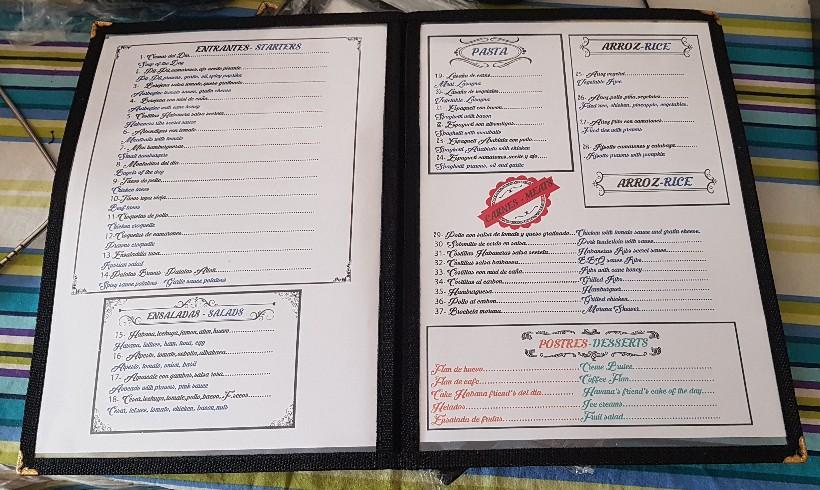 ENTRANTES- STARTERS
1- Crema del Dia
Soup of the Day
2- Pil Pil, camarones, ajo aceite picante
Pil Pil, prawns, garlic, oil, spicy paprika
3- Berejena salsa tomate, queso gratinado
Aubergine tomato sauce, gratin cheese
4- Berejena con miel de caña
Aubergine with cane honey
5- Costillas Habanera salsa secreta
Habanera ribs secret sauce
6- Albondigas con tomate
Meatballs with tomato
7- Mini hamburguesas
Small hamburgers
8- Montaditos del dia
Bagels of the day
9- Tacos de pollo
Chicken tacos
10-Tacos ropa vieja
Beef tacos
11-Croquetas de pollo
Chicken croquette
12-Croquetas de camarones
Prawns croquette
13-Ensaladilla rusa
Russian salad
14-Patatas Bravas Patatas Alioli
Spicy sauce potatoes Garlic sauce potatoes
ENSALADAS - SALADS
15- Habana, lechuga, jamon, atun, huevo
Havana, lettuce, ham, tuna, egg
16- Caposto, tomate, cebolla, albahaca
Caposto, tomato, onion, basil
17- Aguacate con gambas, salsa rosa
Avocado with prawns, pink sauce
18- Cesar, lechuga, tomate, pollo, bacon, F. secos
Cesar, letuce, tomato, chicken, bacon, nuts
PASTA
19- Lasaña de carne
Meat Lasagna
20- Lasaña de vegetales
Vegetable Lasagna
21- Espagueti con bacon
Spaghetti with bacon
22- Espagueti con albondigas
Spaghetti with meatballs
23- Espagueti Arabiata con pollo
Spaghetti Arabiata with chicken
24- Espagueti camarones, aceite y ajo
Spaghetti prawns, oil and garlic
ARROZ-RICE
25- Arroz vegetal
Vegetable Rice
26- Arroz, pollo, piña, vegetales
Fried rice, chicken, pineapple, vegetables.
27- Arroz frito con camarones
Fried rice with prawns
28- Risotto camarones y calabaza
Risotto prawns with pumpkin
ARROZ-RICE
CARNES - MEATS
29- Pollo con salsa de tomate y queso gratinado...Chicken with tomato sauce and gratin cheese.
30- Solomillo de cerdo en salsa Pork tenderloin with sauce
31- Costillas Habaneras salsa secreta Habaneras Ribs secret sauce
32- Costillas salsa barbacoa B.B.Q sauce Ribs
33- Costillas con miel de caña Ribs with cane honey
34- Costillas al carbon Grilled Ribs
35- Hamburguesa Hamburguer
36- Pollo al carbon Grilled chicken
37- Brocheta moruna Moruna Skewer
POSTRES-DESSERTS
Flan de huevo Creme Brulee
Flan de cafe Coffee Flan
Cake Habana friend's del dia Havana's friend's cake of the day
Helados Ice creams
Ensalada de frutas Fruit salad